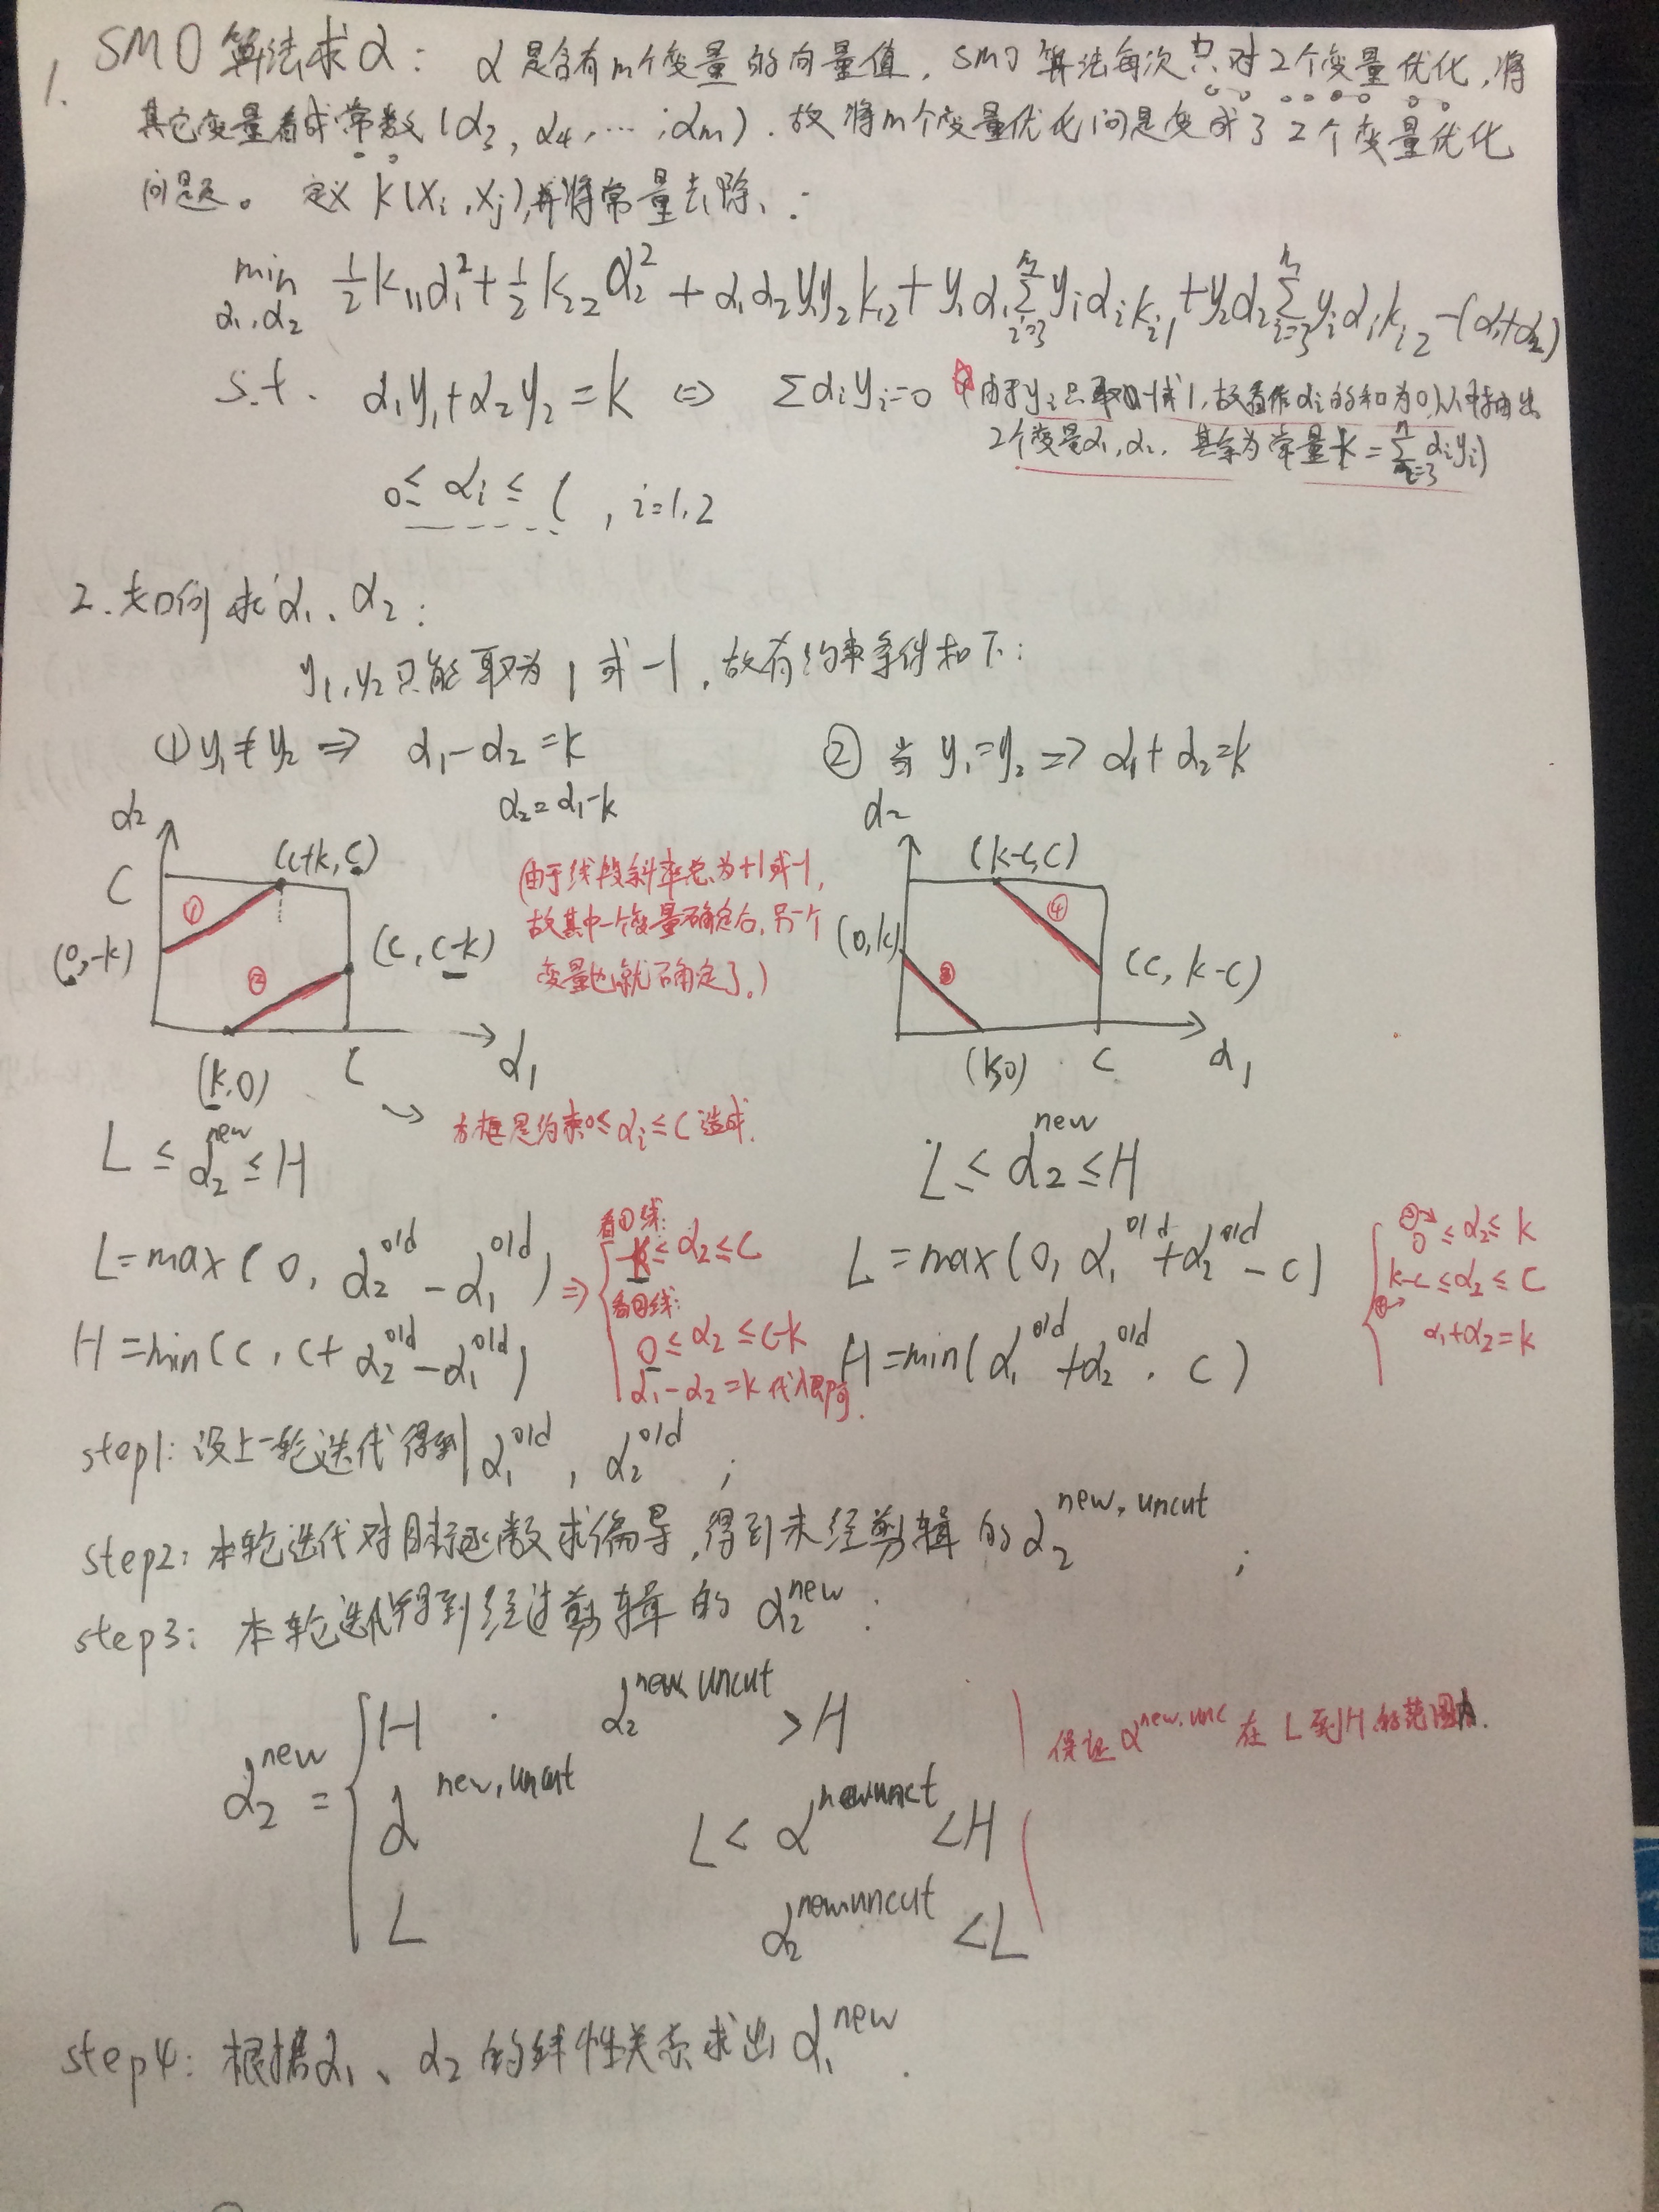 1. SMO算法求α: α是含有m个变量的向量值, SMO算法每次只对2个变量优化,将
其它变量看成常数(α₃, α₄, ⋯, αm). 故将m个变量优化问是变成了2个变量优化
问题。定义K(xᵢ,xⱼ),并将常量去除,:
min α₁,α₂ ½k₁₁α₁²+½k₂₂α₂²+α₁α₂y₁y₂k₁₂+y₁α₁∑ᵢ₌₃yᵢαᵢkᵢ₁+y₂α₂∑ᵢ₌₃yᵢαᵢkᵢ₂-(α₁+α₂)
s.t. α₁y₁+α₂y₂=k ⇔ ∑αᵢyᵢ=0 (由于yᵢ只取-1或1,故看作αᵢ的和为0,从中抽出
2个变量α₁,α₂, 其余为常量k=∑αᵢyᵢ)
0≤αᵢ≤C, i=1,2
2.如何求α₁、α₂:
y₁,y₂只能取为1或-1,故有约束条件如下:
① y₁≠y₂ ⇒ α₁-α₂=k
α₂=α₁-k
② 当y₁=y₂ ⇒ α₁+α₂=k
α₂
(c+k,C)
C
①
(0,-k)
②
(C,C-k)
(k,0)
C
α₁
(由于线段斜率总为+1或-1,
故其中一个变量确定后,另一个
变量也就确定了。)
α₂
(k-C,C)
④
(0,k)
③
(C,k-C)
(k,0)
C
α₁
→ 方框是约束0≤αᵢ≤C造成.
L≤α₂^new≤H
L=max(0, α₂^old-α₁^old) ⇒
H=min(C, C+α₂^old-α₁^old)
看①线:
-k≤α₂≤C
看②线:
0≤α₂≤C-k
α₁-α₂=k代入即可.
L≤α₂^new≤H
L=max(0, α₁^old+α₂^old-C)
H=min(α₁^old+α₂^old, C)
0≤α₂≤k
k-C≤α₂≤C
④→
α₁+α₂=k
step1: 设上一轮迭代得到α₁^old, α₂^old;
step2: 本轮迭代对目标函数求偏导,得到未经剪辑的α₂^new,uncut;
step3: 本轮迭代得到经过剪辑的α₂^new:
α₂^new = { H, α₂^new,uncut >H
α^new,uncut L<α^newunct<H
L α₂^new,uncut <L
保证α^new,unc在L到H的范围内.
step4: 根据α₁、α₂的线性关系求出α₁^new.